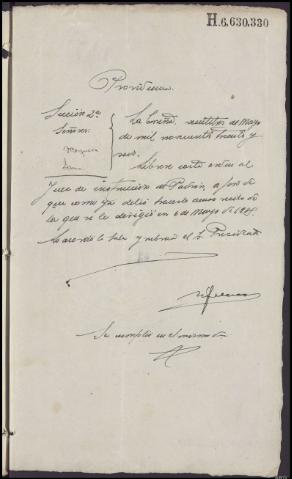 H.6.630.330
Providencia
Sección 2ª
Señores
La Coruña, de Mayo
de mil novecientos treinta y
seis.
Líbrese carta orden al
Juez de instrucción de Padrón, a fin de
que como ya debió hacerlo acuse recibo de
la que se le dirigió en 6 de Mayo de
Lo acordó la Sala y rubrica el Sr. Presidente
Se cumplió en el mismo día